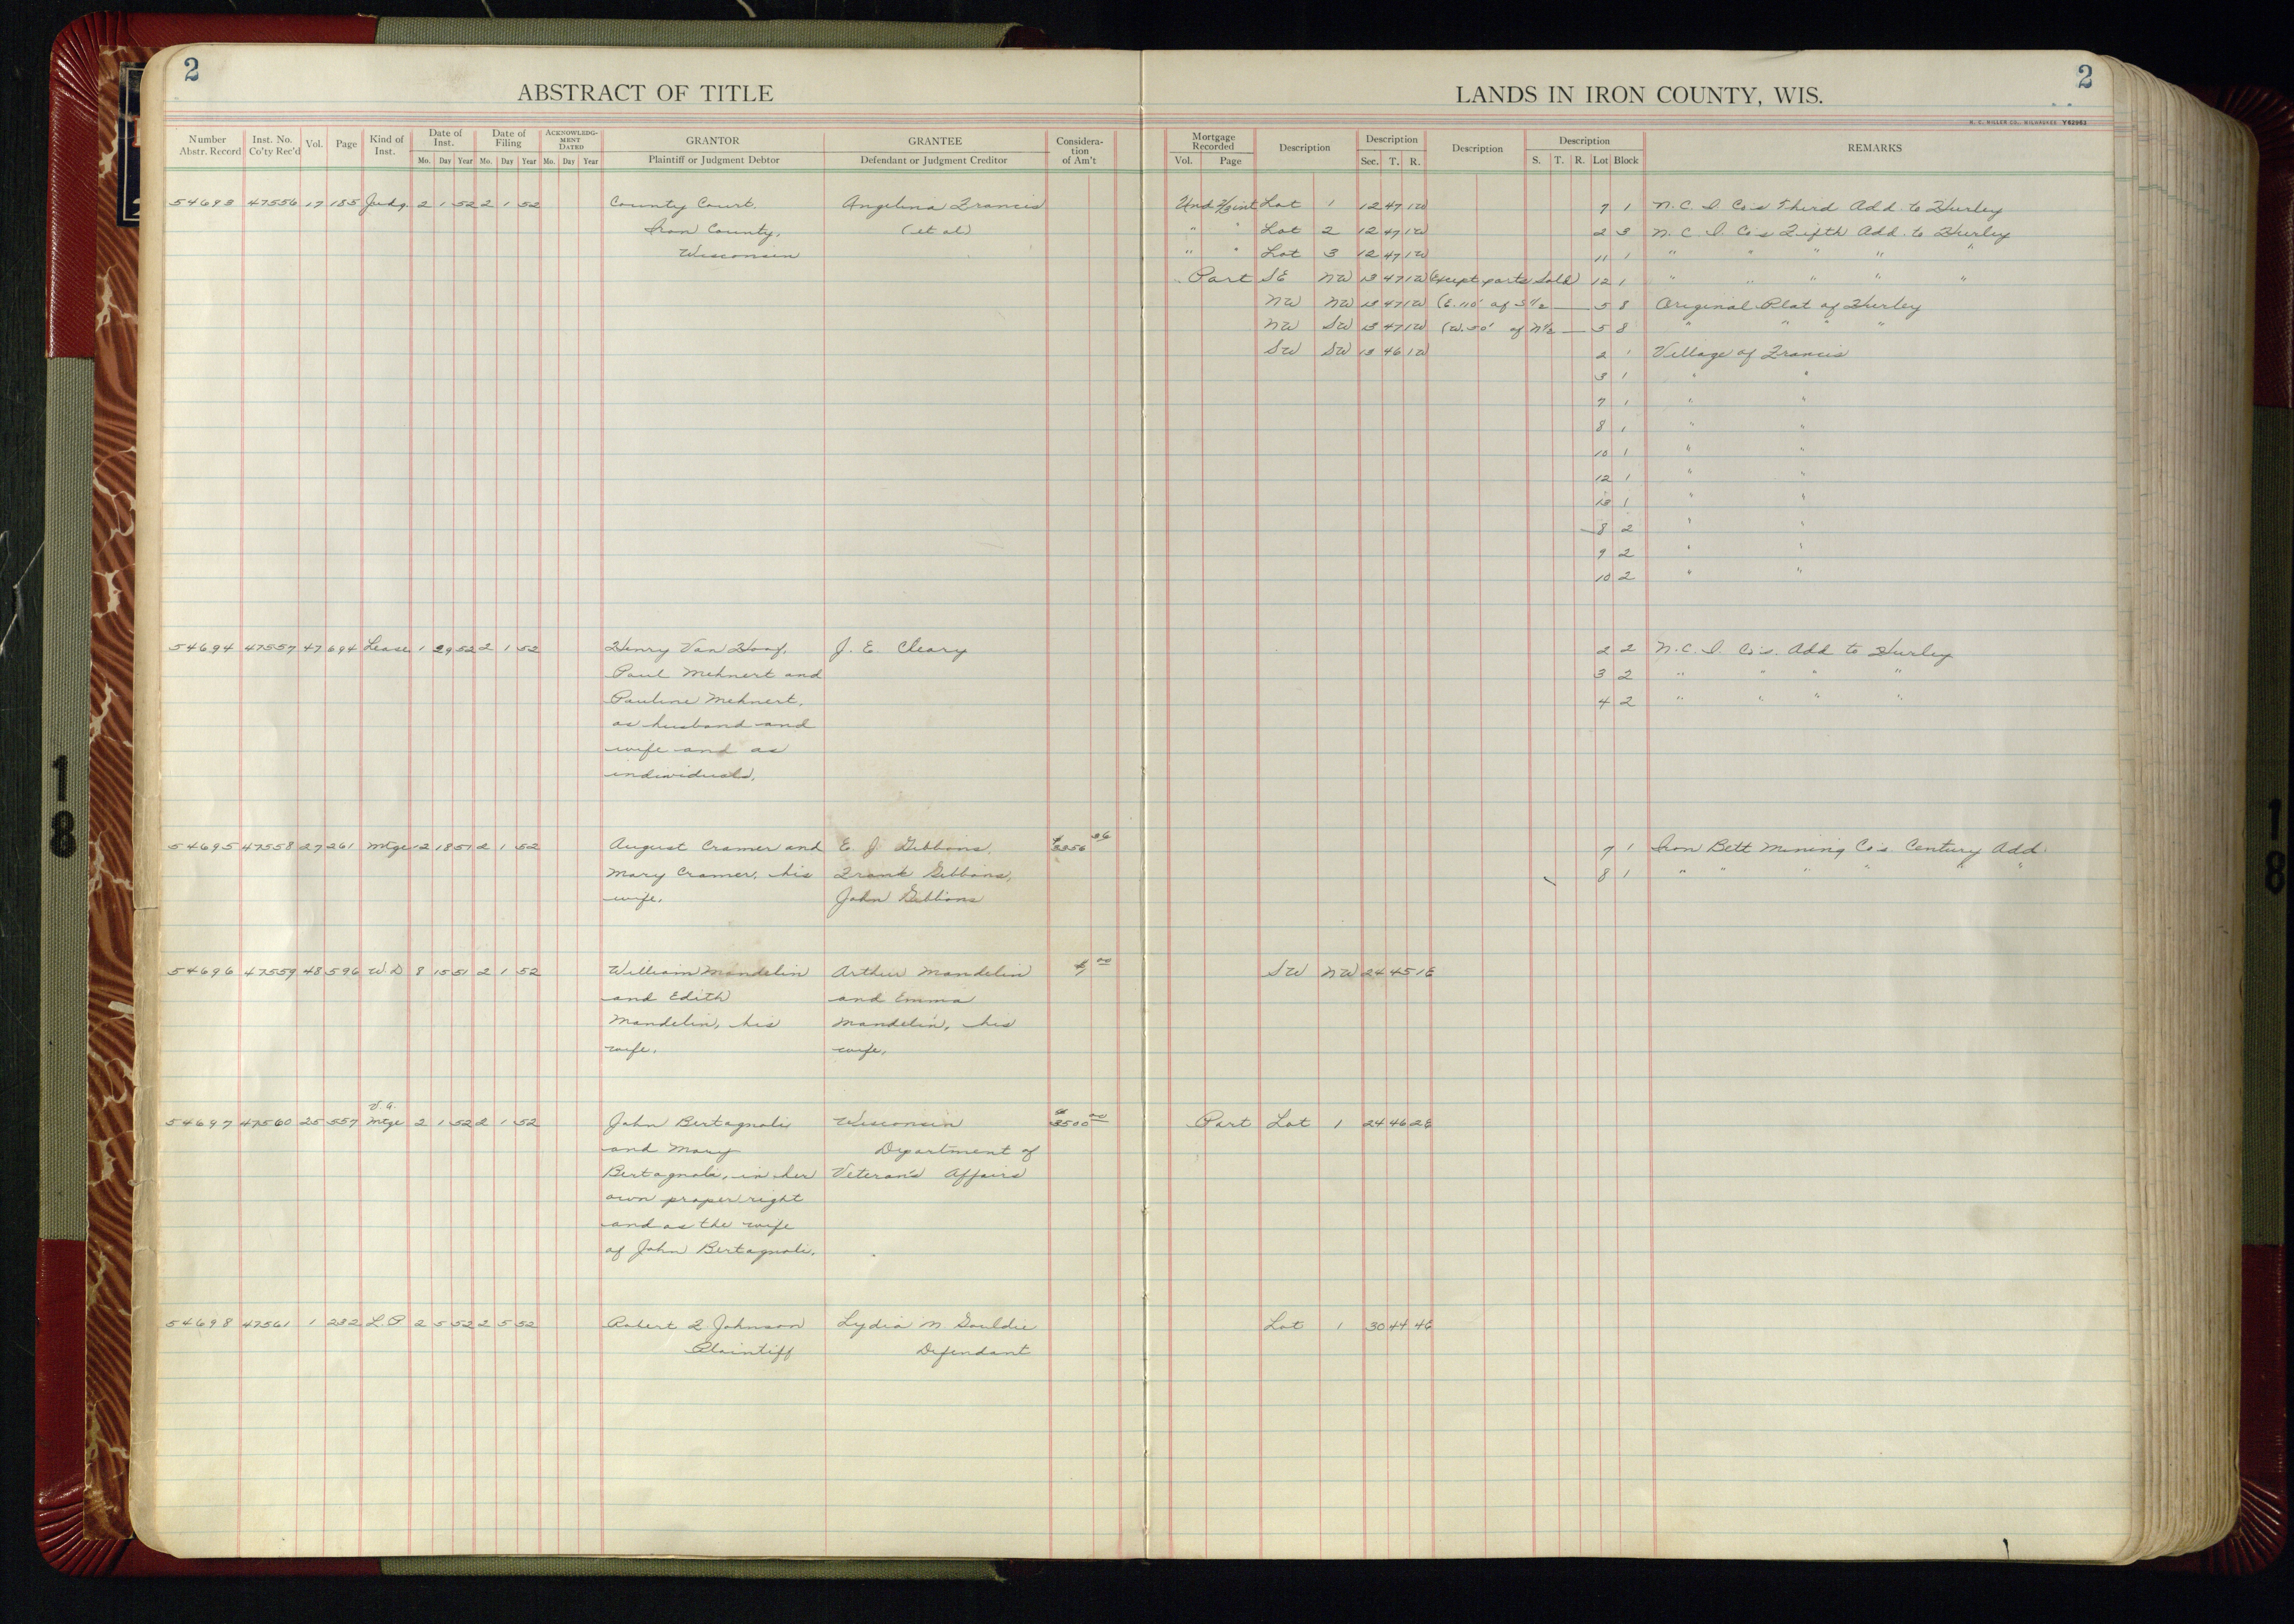 2
ABSTRACT OF TITLE
LANDS IN IRON COUNTY, WIS.
2
H. C. MILLER CO., MILWAUKEE Y62963
Number Abstr. Record Inst. No. Co'ty Rec'd Vol. Page Kind of Inst. Date of Inst. Mo. Day Year Date of Filing Mo. Day Year ACKNOWLEDGMENT DATED Mo. Day Year GRANTOR Plaintiff or Judgment Debtor GRANTEE Defendant or Judgment Creditor Considera-tion of Am't Mortgage Recorded Vol. Page Description Description Sec. T. R. Description Description S. T. R. Lot Block REMARKS
54693 47556 17 185 Judg. 2 1 52 2 1 52 County Court, Angelina Francis Und 2/3 int Lot 1 12 47 1W 7 1 N.C.I. Co's Third Add. to Hurley
Iron County, (et al) " " Lot 2 12 47 1W 2 3 N.C.I. Co's Fifth Add. to Hurley
Wisconsin " " Lot 3 12 47 1W 11 1 " " " " "
Part SE NW 13 47 1W (Except parts Sold) 12 1 " " " " "
NW NW 13 47 1W (E. 110' of S 1/2 — 5 8 Original Plat of Hurley
NW SW 13 47 1W (W. 50' of N 1/2 — 5 8 " " " "
SW SW 13 46 1W 2 1 Village of Francis
3 1 " "
7 1 " "
8 1 " "
10 1 " "
12 1 " "
13 1 " "
8 2 " "
9 2 " "
10 2 " "
54694 47557 47 694 Lease 1 29 52 2 1 52 Henry Van Hoof, J. E. Cleary 2 2 N.C.I. Co's. Add to Hurley
Paul Mehnert and 3 2 " " " "
Pauline Mehnert, 4 2 " " " "
as husband and
wife and as
individuals.
54695 47558 27 261 Mtge 12 18 51 2 1 52 August Cramer and E. J. Gibbons, 7 1 Iron Belt Mining Co's Century Add
Mary Cramer, his Frank Gibbons, 8 1 " " " " " "
wife. John Gibbons
54696 47559 48 596 W.D 8 15 51 2 1 52 William Mandelin Arthur Mandelin $1 00 SW NW 24 45 1E
and Edith and Emma
Mandelin, his Mandelin, his
wife. wife.
V.A.
54697 47560 25 557 Mtge 2 1 52 2 1 52 John Bertagnoli Wisconsin $3500 00 Part Lot 1 24 46 2E
and Mary Department of
Bertagnoli, in her Veteran's Affairs
own proper right
and as the wife
of John Bertagnoli.
54698 47561 1 232 L.P 2 5 52 2 5 52 Robert L. Johnson Lydia N Gouldie Lot 1 30 44 4E
Plaintiff Defendant
18
18